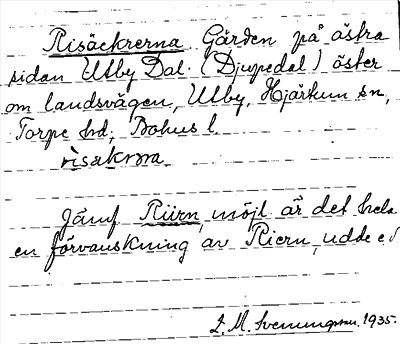 Risäckrerna Gärden på östra
sidan Utby Dal. (Djupedal) öster
om landsvägen, Utby, Hjärtum sn,
Torpe hd, Bohus l.
risakrna.
Jämf Riirn, möjl. är det hela
en förvanskning av Riern, udde
1935.